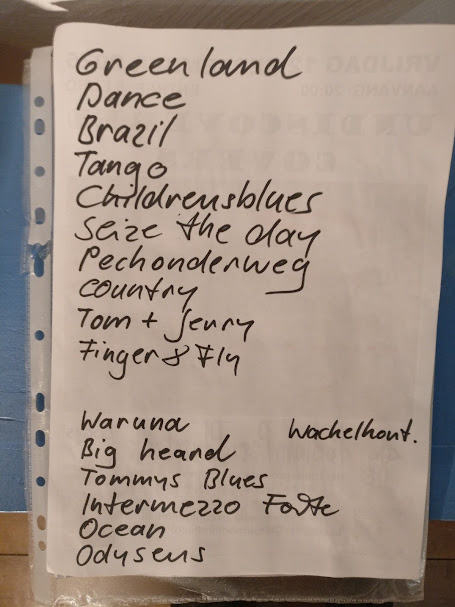 Greenland
Dance
Brazil
Tango
Childrensblues
Seize the day
Pechonderweg
Country
Tom + Jerry
Finger & Fly
Waruna
Wachelhout.
Big heand
Tommys Blues
Intermezzo Forte
Ocean
Odysens